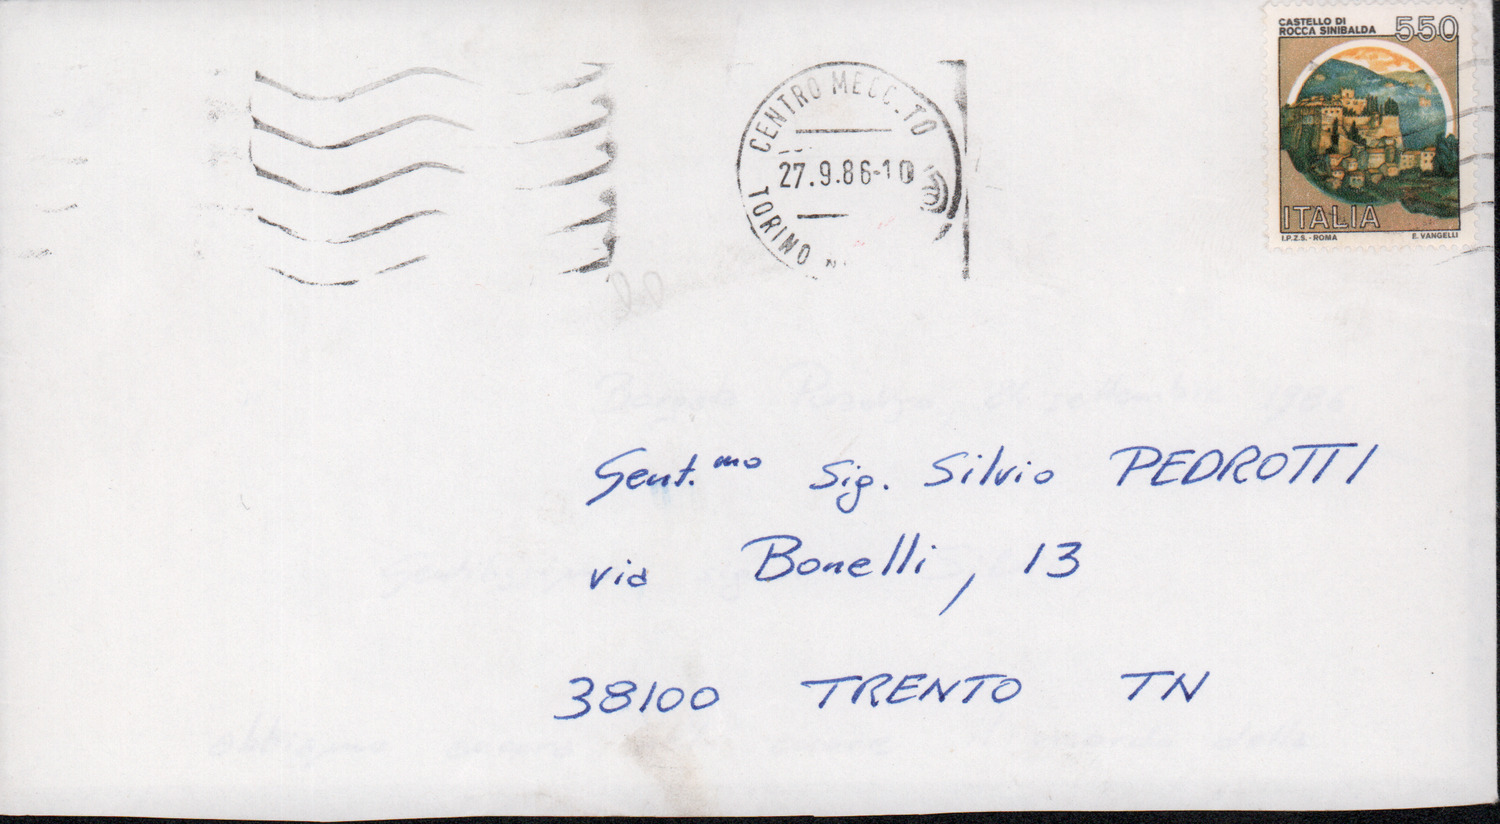 CASTELLO DI
ROCCA SINIBALDA 550
ITALIA
I.P.Z.S. - ROMA E. VANGELLI
CENTRO MECC. TO
27.9.86-10
TORINO
Gent.mo Sig. Silvio PEDROTTI
via Bonelli, 13
38100 TRENTO TN